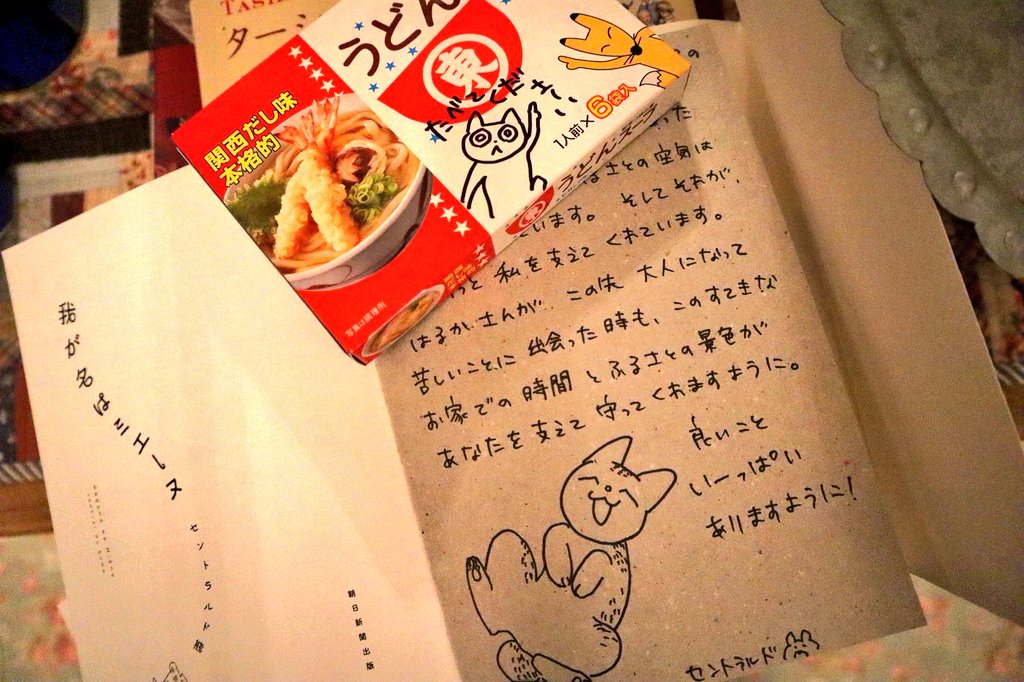 TASH
ター
うどん
東
たべてください
1人前×6袋入
うどんスープ
関西だし味
本格的
写真は調理例
の
った
るさとの空気は
ています。そしてそれが、
っと私を支えてくれています。
はるかさんが、この先大人になって
苦しいことに出会った時も、このすてきな
お家での時間とふるさとの景色が
あなたを支えて守ってくれますように。
良いこと
いーっぱい
ありますように!
セントラルド
我が名はミエーヌ
セントラルド
朝日新聞出版